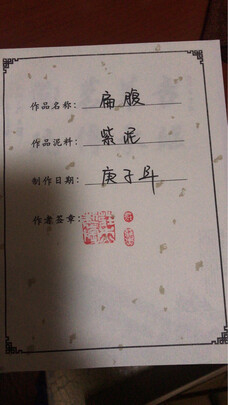 作品名称：扁腹
作品泥料：紫泥
制作日期：庚子年
作者签章：